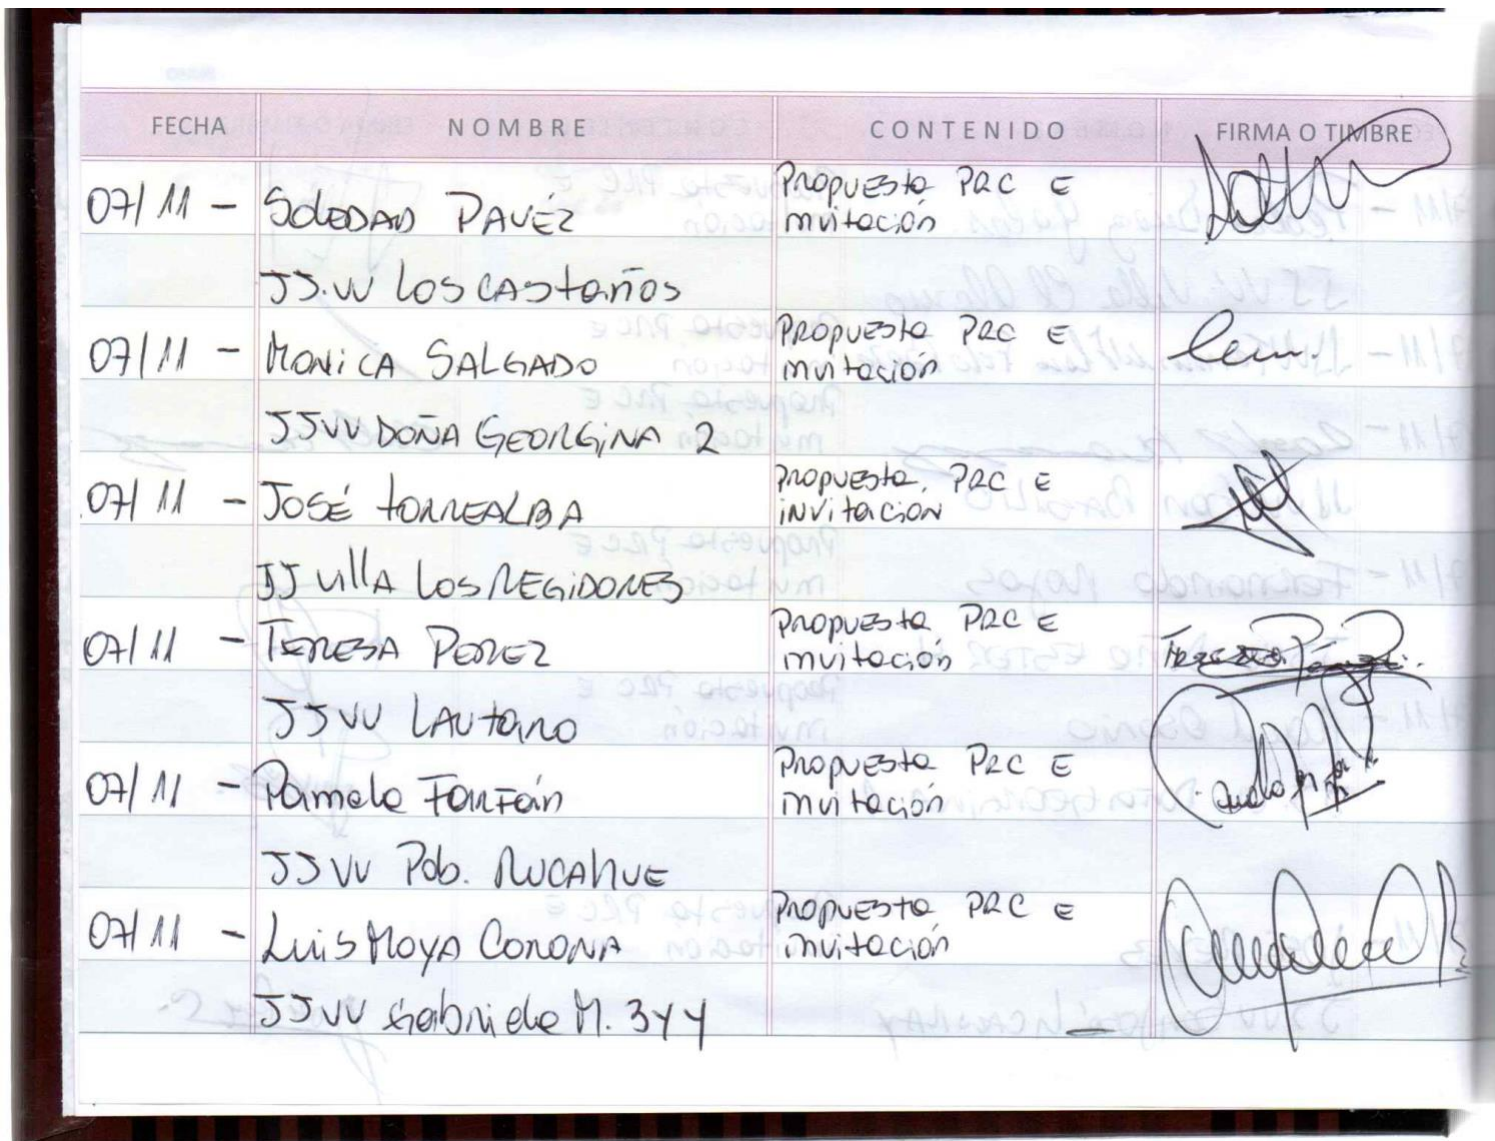 FECHA NOMBRE CONTENIDO FIRMA O TIMBRE
07/11 - SOLEDAD PAVÉZ Propuesta PRC E
invitación
JJ.VV LOS CASTAÑOS
07/11 - MONICA SALGADO Propuesta PRC E
invitación
JJVV DOÑA GEORGINA 2
07/11 - JOSÉ TORREALBA Propuesta PRC E
invitación
JJ VILLA LOS REGIDORES
07/11 - TERESA PEREZ Propuesta PRC E
invitación
JJVV LAUTARO
07/11 - Pamela FARFÁN Propuesta PRC E
invitación
JJVV Pob. RUCAHUE
07/11 - LUIS MOYA CORONA Propuesta PRC E
invitación
JJVV Gabriela M. 3 y 4